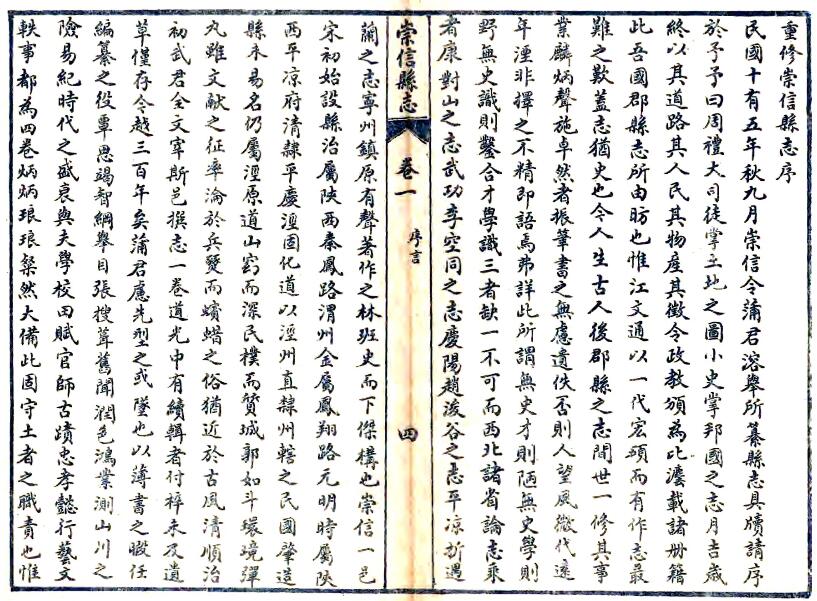 重修崇信縣志序
民國十有五年秋九月崇信令蒲君溶舉所纂縣志具牘請序
於予予曰周禮大司徒掌土地之圖小史掌邦國之志月吉歲
終以其道路其人民其物產其徵令政教頒為比灋載諸册籍
此吾國郡縣志所由昉也惟江文通以一代宏碩而有作志最
難之歎蓋志猶史也今人生古人後郡縣之志間世一修其事
業麟炳聲施卓然者振筆書之無慮遺佚否則人望風微代遠
年湮非擇之不精即語焉弗詳此所謂無史才則陋無史學則
野無史識則鑿合才學識三者缺一不可而西北諸省論志乘
者康對山之志武功李空同之志慶陽趙浚谷之志平凉折遇
崇信縣志
卷一
序言
四
蘭之志寧州鎮原有聲著作之林班史而下傑構也崇信一邑
宋初始設縣治屬陝西秦鳳路渭州金屬鳳翔路元明時屬陝
西平凉府清隸平慶涇固化道以涇州直隸州轄之民國肇造
縣未易名仍屬涇原道山窈而深民樸而質城郭如斗環境彈
丸雖文獻之征率淪於兵燹而蠙蜡之俗猶近於古風清順治
初武君全文宰斯邑撰志一卷道光中有續輯者付梓未及遺
草僅存今越三百年矣蒲君慮先型之或墜也以薄書之暇任
編纂之役覃思竭智綱舉目張搜葺舊聞潤色鴻業測山川之
險易紀時代之盛衰與夫學校田賦官師古蹟忠孝懿行藝文
軼事都為四卷炳炳琅琅粲然大備此固守土者之職責也惟